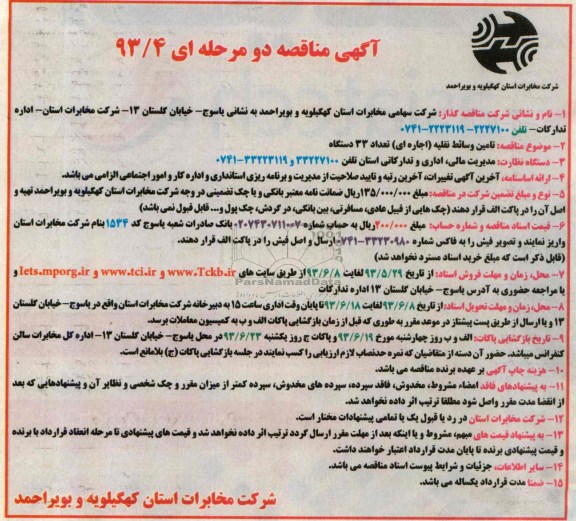 آگهی مناقصه دو مرحله ای ۹۳/۴
شرکت مخابرات استان کهگیلویه و بویراحمد
۱- نام و نشانی شرکت مناقصه گذار: شرکت سهامی مخابرات استان کهگیلویه و بویراحمد به نشانی یاسوج- خیابان گلستان ۱۳- شرکت مخابرات استان- اداره
تدارکات- تلفن ۲۲۲۷۱۰۰- ۲۲۲۳۱۱۹-۰۷۴۱
۲- موضوع مناقصه: تامین وسائط نقلیه (اجاره ای) تعداد ۳۳ دستگاه
۳- دستگاه نظارت: مدیریت مالی، اداری و تدارکاتی استان تلفن ۳۳۲۲۷۱۰۰ و ۳۳۲۲۳۱۱۹-۰۷۴۱
۴- ارائه اساسنامه، آخرین آگهی تغییرات، آخرین رتبه و تایید صلاحیت از مدیریت و برنامه ریزی استانداری و اداره کار و امور اجتماعی الزامی می باشد.
۵- نوع و مبلغ تضمین شرکت در مناقصه: مبلغ ۱۳۵/۰۰۰/۰۰۰ریال ضمانت نامه معتبر بانکی و یا چک تضمینی در وجه شرکت مخابرات استان کهگیلویه و بویراحمد تهیه و
اصل آن را در پاکت الف قرار دهند (چک هایی از قبیل عادی، مسافرتی، بین بانکی، در گردش، چک پول و... قابل قبول نمی باشد)
۶- قیمت اسناد مناقصه و شماره حساب: مبلغ ۲۰۰/۰۰۰ریال به حساب شماره ۰۲۰۷۴۳۰۷۱۱۰۰۷ بانک صادرات شعبه یاسوج کد ۱۵۳۴ بنام شرکت مخابرات استان
واریز نمایند و تصویر فیش را به فاکس شماره ۳۳۲۳۰۹۸۰-۰۷۴۱ ارسال و اصل فیش را در پاکت الف قرار دهند.
(قابل ذکر است که مبلغ خرید اسناد مسترد نخواهد شد)
۷- محل، زمان و مهلت فروش اسناد: از تاریخ ۹۳/۵/۲۹ لغایت ۹۳/۶/۸ از طریق سایت های www.Tckb.ir و www.tci.ir و Iets.mporg.ir و
یا مراجعه حضوری به آدرس یاسوج- خیابان گلستان ۱۳ اداره تدارکات
۸- محل، زمان و مهلت تحویل اسناد: از تاریخ ۹۳/۶/۸ لغایت ۹۳/۶/۱۸ تا پایان وقت اداری ساعت ۱۵ به دبیرخانه شرکت مخابرات استان واقع در یاسوج- خیابان گلستان
۱۳ و یا ارسال از طریق پست پیشتاز در موعد مقرر به طوری که قبل از زمان بازگشایی پاکات الف و ب به کمیسیون معاملات برسد.
۹- تاریخ بازگشایی پاکات: الف و ب روز چهارشنبه مورخ ۹۳/۶/۱۹ و پاکات ج روز یکشنبه ۹۳/۶/۲۳ در محل یاسوج- خیابان گلستان ۱۳- اداره کل مخابرات سالن
کنفرانس میباشد. حضور آن دسته از متقاضیان که نمره حدنصاب لازم ارزیابی را کسب نمایند در جلسه بازگشایی پاکات (ج) بلامانع است.
۱۰- هزینه چاپ آگهی بر عهده برنده مناقصه می باشد.
۱۱- به پیشنهادهای فاقد امضاء مشروط، مخدوش، فاقد سپرده، سپرده های مخدوش، سپرده کمتر از میزان مقرر و چک شخصی و نظایر آن و پیشنهادهایی که بعد
از انقضا مدت مقرر واصل شود مطلقا ترتیب اثر داده نخواهد شد.
۱۲- شرکت مخابرات استان در رد یا قبول یک یا تمامی پیشنهادات مختار است.
۱۳- به پیشنهاد قیمت های مبهم، مشروط و یا اینکه بعد از مهلت مقرر ارسال گردد ترتیب اثر داده نخواهد شد و قیمت های پیشنهادی تا مرحله انعقاد قرارداد با برنده
و قیمت پیشنهادی برنده تا پایان مدت قرارداد اعتبار خواهند داشت.
۱۴- سایر اطلاعات، جزئیات و شرایط پیوست اسناد مناقصه می باشد.
۱۵- ضمنا مدت قرارداد یکساله می باشد.
شرکت مخابرات استان کهگیلویه و بویراحمد
ParsNamadData